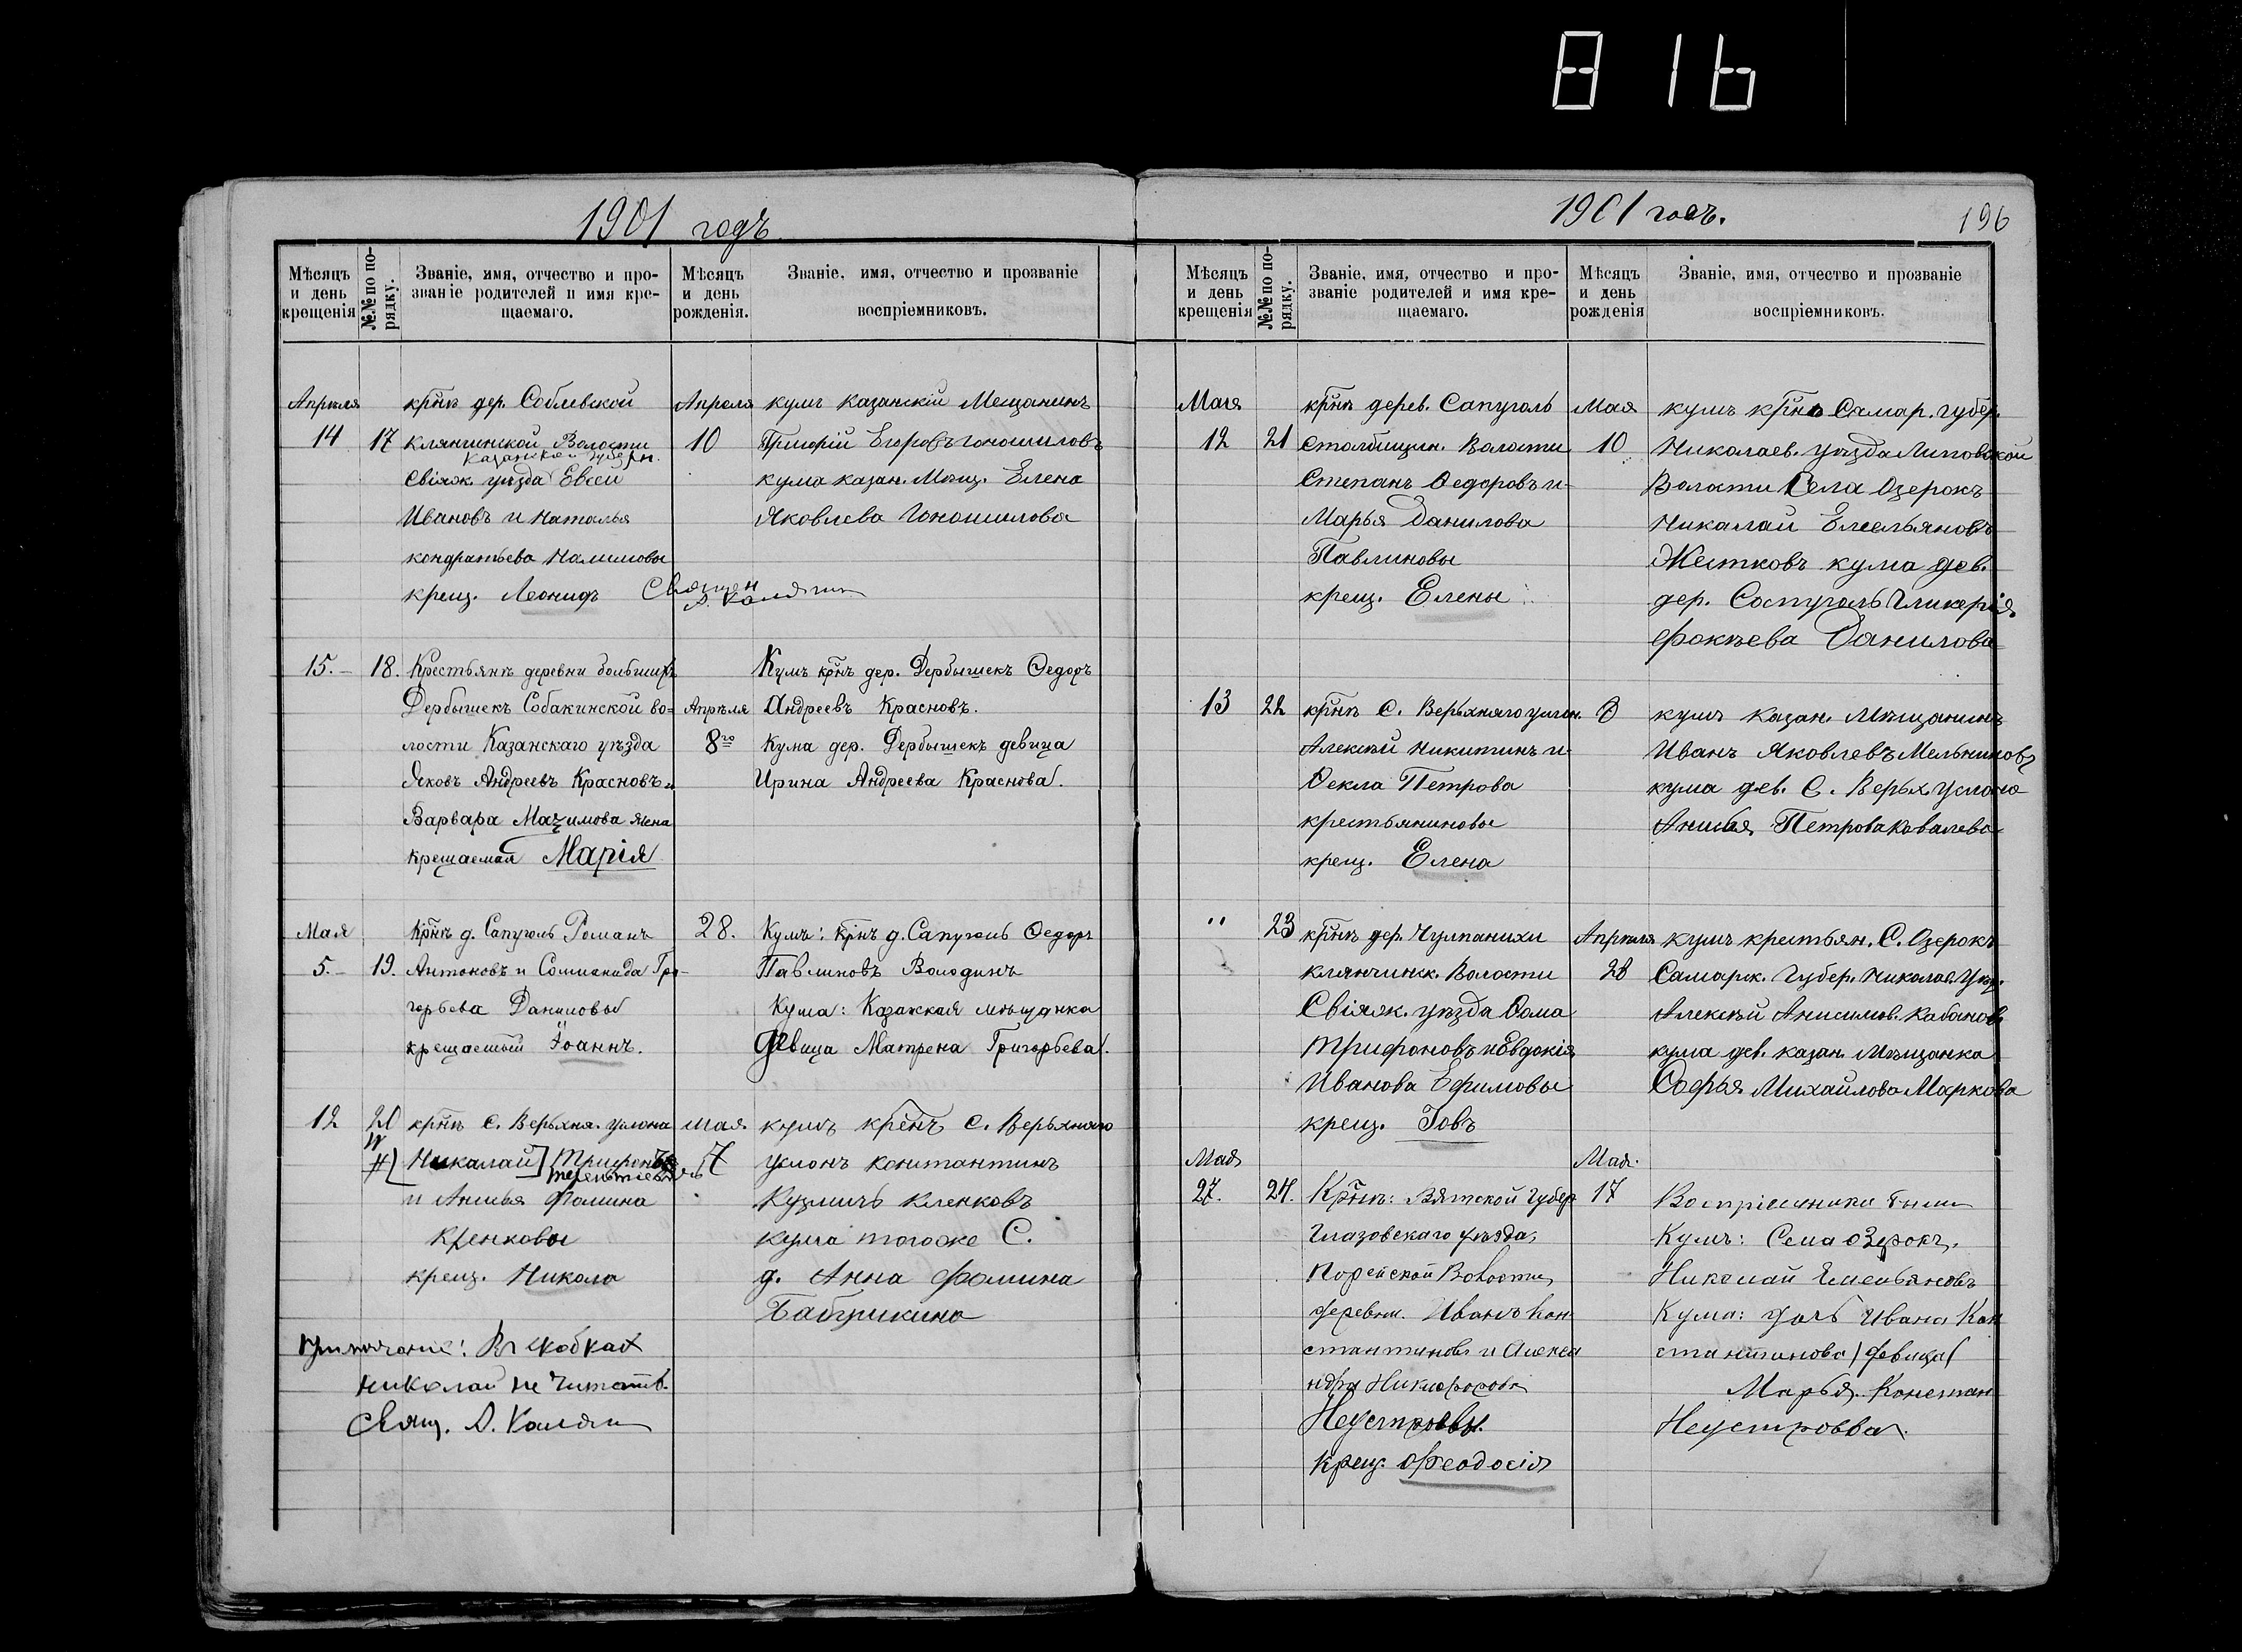 816
1901 годъ.
Мѣсяцъ и день крещенія
№№ по порядку.
Званіе, имя, отчество и прозваніе родителей и имя крещаемаго.
Мѣсяцъ и день рожденія.
Званіе, имя, отчество и прозваніе воспріемниковъ.
Апрѣля
14
17
крнъ дер. Соблевской
Клянчинской Волости
Казанской губерн.
Свіяж. уѣзда Евсей
Ивановъ и Наталья
Кондратьева
крещ. Леонидъ
Апреля
10
кумъ казанскій Мещанинъ
Григорій Егоровъ Юношиловъ
кума казан. Мѣщ. Елена
Яковлева Юношилова
Священ
15.
18.
Крестьянъ деревни большихъ
Дербышекъ Собакинской во=
лости Казанскаго уѣзда
Яковъ Андреевъ Красновъ и
Варвара Мазимова жена
крещаемая Марія
Апрѣля
8го
Кумъ крнъ дер. Дербышекъ Ѳедоръ
Андреевъ Красновъ.
Кума дер. Дербышекъ девица
Ирина Андреева Краснова.
Мая
5.
19.
Крнъ д. Сапуголь Романъ
Антоновъ и Соломонида Гри-
горьева Даниловы
крещаемый Іоаннъ.
28.
Кумъ: крнъ д. Сапуголь Ѳедоръ
Павлиновъ Володинъ
Кума: Казанская мѣщанка
девица Матрена Григорьева.
12
20
крнъ С. Верьхня. Услона
[Николай] Трифонъ
Терентьевъ
и Анисья Фомина
Кренковы
крещ. Никола
мая
7
кумъ крен С. Верьхняго
Услонъ Контантинъ
Кузмичъ Кленковъ
кума тогоже С.
д. Анна Фомина
Бабушкина
Примѣчаніе: Въ скобкахъ
Николай не читать.
Свящ.
1901 годъ.
196
Мѣсяцъ и день крещенія
№№ по порядку.
Званіе, имя, отчество и прозваніе родителей и имя крещаемаго.
Мѣсяцъ и день рожденія
Званіе, имя, отчество и прозваніе воспріемниковъ.
Мая
12
21
крнъ дерев. Сапуголь
Столбищин. Волости
Степанъ Ѳедоровъ и
Марья Данилова
Павлиновы
крещ. Елены
Мая
10
кумъ крнъ Самар. губер.
Николаев. уѣзда Липовской
Волости Села Озерокъ
Николай Емельяновъ
Жестковъ кума дев.
дер. Сапуголь Гликерія
Фокѣева Данилова
13
22
крнъ С. Верьхняго услон.
Алексѣй Никитинъ и
Ѳекла Петрова
крестьяниновы
крещ. Елена
кумъ казан. Мѣщанинъ
Иванъ Яковлевъ Мельниковъ
кума дев. С. Верьх. Услона
Анисья Петрова Ковалева
"
23
крнъ дер. Чулпанихи
Клянчинск. Волости
Свіяж. уѣзда Ѳома
Трифоновъ и Евдокія
Иванова Ефимовы
крещ. Іовъ
Апрѣля
28
кумъ крестьян. С. Озерокъ
Самарск. Губер. Николаев. Уѣз.
Алексѣй Анисимов. Кабановъ
кума дев. казан. Мѣщанка
Софья Михайлова Маркова
Мая
27.
24.
Крнъ: Вятской Губер
Глазовскаго уѣзда,
Волости,
деревни. Иванъ Кон
стантиновъ и Алекса
ндра Никифорова
Неустроевы.
крещ. Феодосія
Мая.
17
Воспріемники были
Кумъ: Села Озерокъ.
Николай Емельяновъ
Кума: дочь Ивана Кон
стантинова (девица)
Марья Констан
Неустроева.